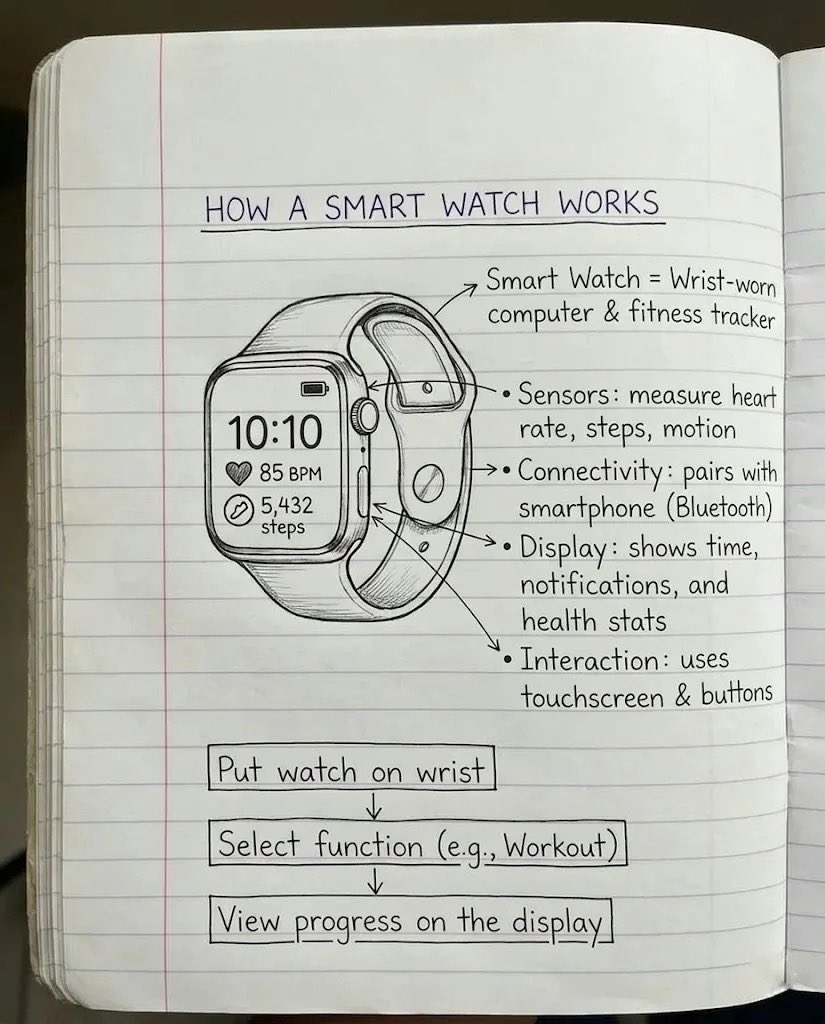 HOW A SMART WATCH WORKS
Smart Watch = Wrist-worn
computer & fitness tracker
10:10
85 BPM
5,432
steps
• Sensors: measure heart
rate, steps, motion
• Connectivity: pairs with
smartphone (Bluetooth)
• Display: shows time,
notifications, and
health stats
• Interaction: uses
touchscreen & buttons
Put watch on wrist
Select function (e.g., Workout)
View progress on the display